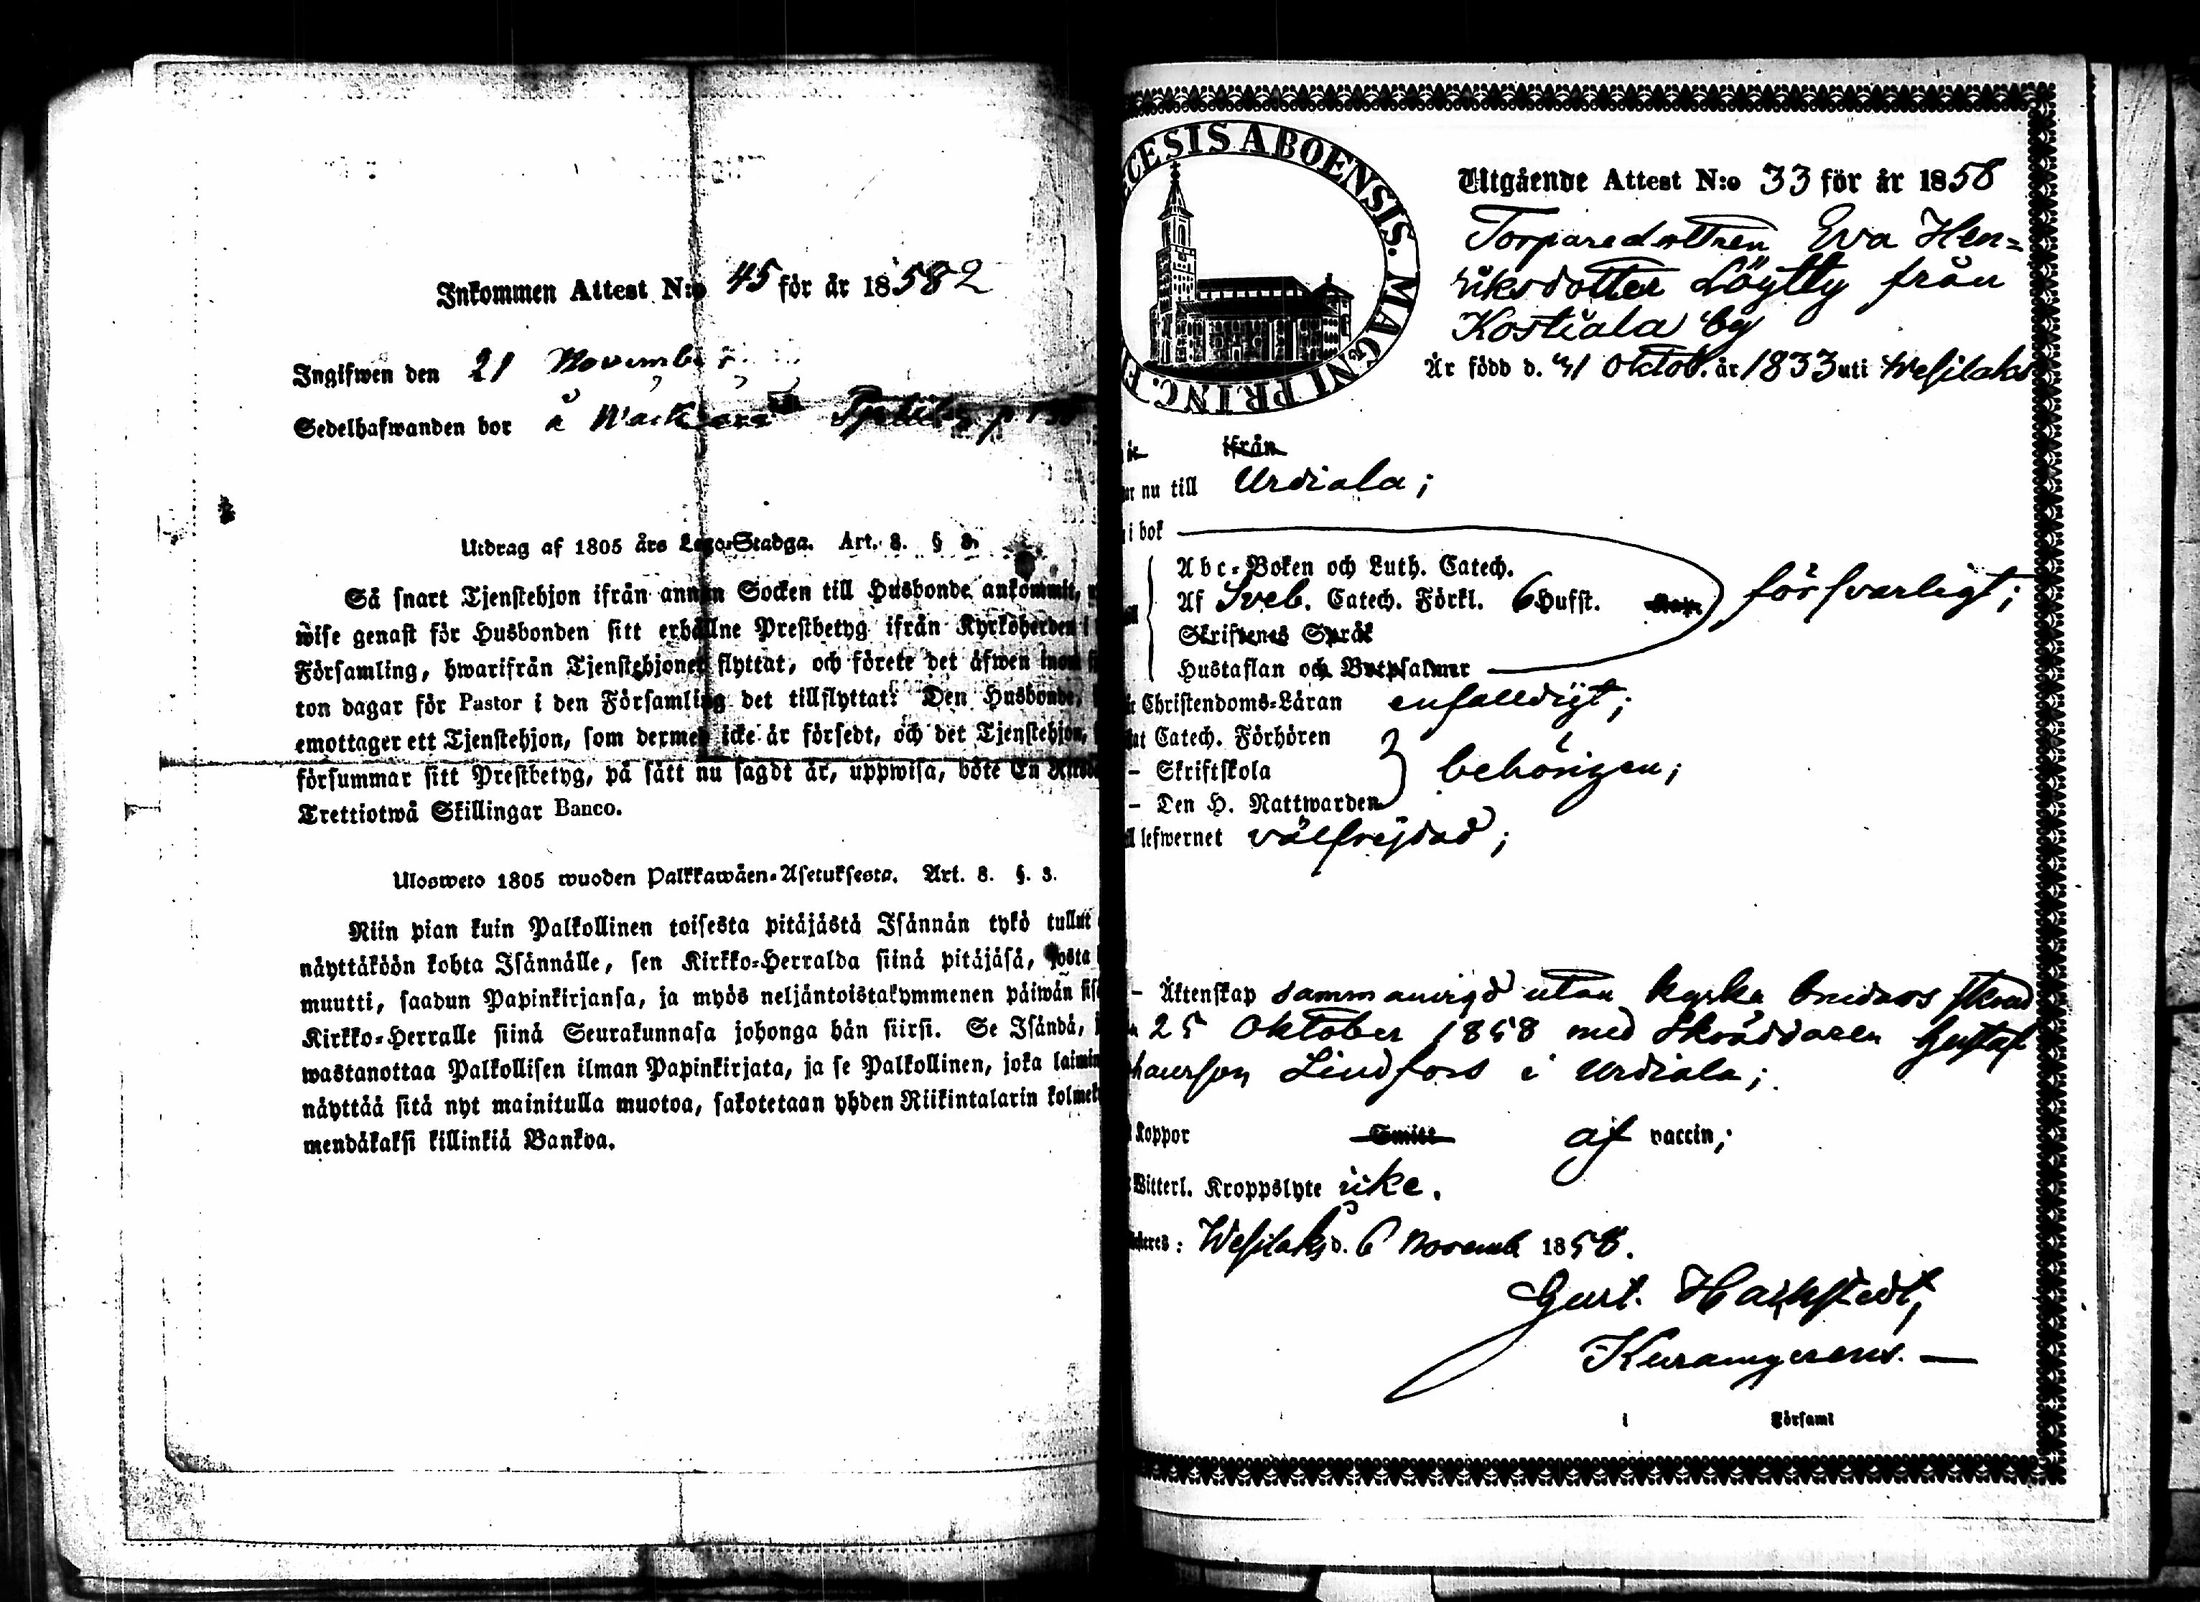 Inkommen Attest N:o 45 för år 1858
Ingifwen den 21 November
Sedelhafwanden bor å
Utdrag af 1805 års Lego-Stadga. Art. 8. § 3.
Så snart Tjenstehjon ifrån annan Socken till Husbonde ankommit,
wise genast för Husbonden sitt erhållne Prestbetyg ifrån Kyrkoherden i
Församling, hwarifrån Tjenstehjonet flyttat, och förete det äfwen inom
ton dagar för Pastor i den Församling det tillflyttat: Den Husbonde,
emottager ett Tjenstehjon, som dermed icke är försedt, och det Tjenstehjon,
försummar sitt Prestbetyg, på sätt nu sagdt är, uppwisa, böte En
Trettiotwå Skillingar Banco.
Ulosweto 1805 wuoden Palkkawäen-Asetuksesta. Art. 8. §. 3.
Niin pian kuin Palkollinen toisesta pitäjästä Isännän tykö tullut
näyttäköön kohta Isännälle, sen Kirkko-Herralda siinä pitäjäsä, josta
muutti, saadun Papinkirjansa, ja myös neljäntoistakymmenen päiwän
Kirkko-Herralle siinä Seurakunnasa johonga hän siirsi. Se Isändä,
wastanottaa Palkollisen ilman Papinkirjata, ja se Palkollinen, joka laimin
näyttää sitä nyt mainitulla muotoa, sakotetaan yhden Riikintalarin kolmek
mendäkaksi killinkiä Bankoa.
CESIS ABOENSIS. MAGNI PRINC. F
Utgående Attest N:o 33 för år 1858
Torparedottren Eva Hen=
riksdotter Löytty från
Kostiala by
Är född d. 31 Oktob. år 1833 uti Wesilaks
ifrån
nu till Urdiala;
i bok
Abc-Boken och Luth. Catech.
Af Sveb. Catech. Förkl. 6 Hufst.
försvarligt;
Skriftenes Språk
Hustaflan och Botpsalmer
Christendoms-Läran enfalldigt;
Catech. Förhören
– Skriftskola
behörigen;
– Den H. Nattwarden
lefwernet välfrejdad;
– Äktenskap sammanvigd utan kyrko brudars
25 Oktober 1858 med Skräddaren Gustaf
Lindfors i Urdiala;
Koppor af vaccin;
Witterl. Kroppslyte icke.
Wesilaks d. 6 Novemb 1858.
Gust.
i Församl